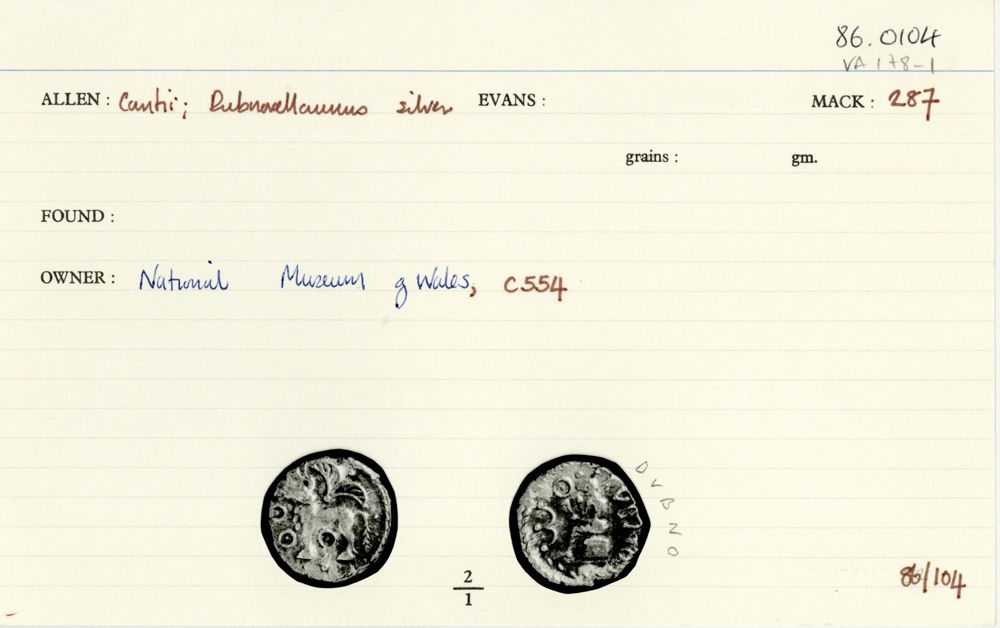 86.0104
VA 178-1
ALLEN : Cantii; Dubnovellaunus silver EVANS : MACK : 287
grains : gm.
FOUND :
OWNER : National Museum of Wales, C554
DVBNO
2
1
86/104